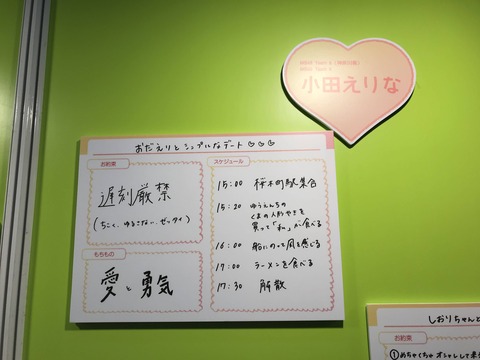 小田えりな
おだえりとシンプルなデート♡♡♡
お約束
遅刻厳禁
(ちこく、ゆるさない、ゼッタイ)
もちもの
愛と勇気
スケジュール
15:00 桜木町駅集合
15:20 ゆうえんちの
くまの人形やきを
買って「私」が食べる
16:00 船にのって風を感じる
17:00 ラーメンを食べる
17:30 解散
しおりちゃんと
お約束
①めちゃくちゃオシャレして来